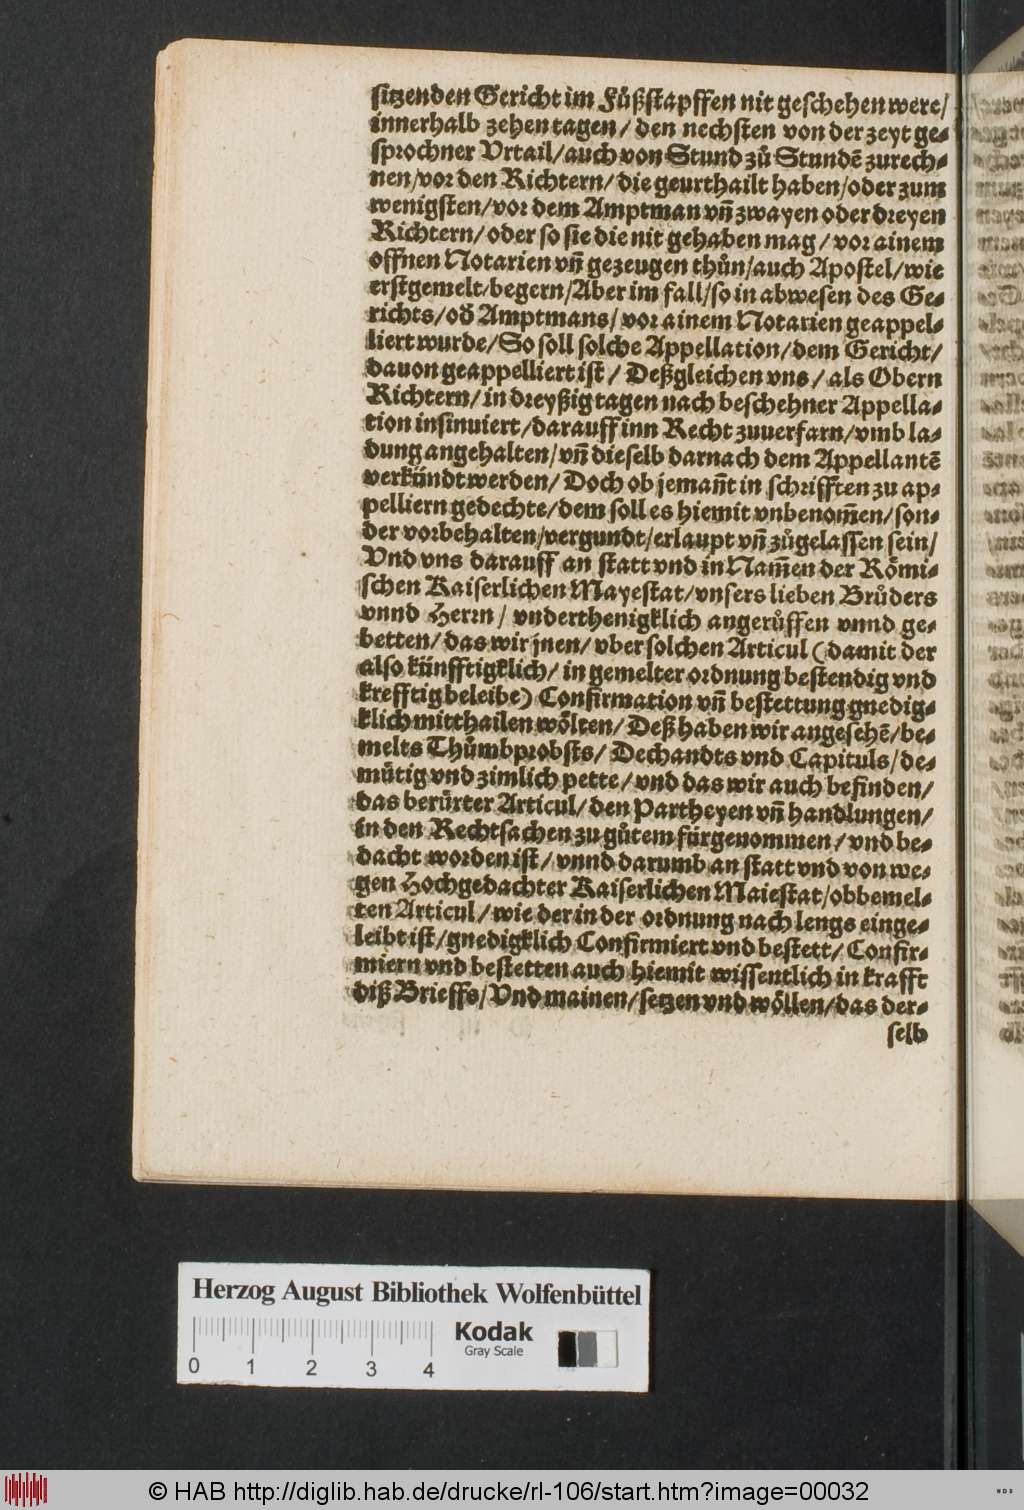 sitzenden Gericht im Fůßstapffen nit geschehen were/
innerhalb zehen tagen/ den nechsten von der zeyt ge⸗
sprochner Vrtail/auch von Stund zů Stundẽ zurech⸗
nen/vor den Richtern/ die geurthailt haben/oder zum
wenigsten/vor dem Amptman vñ zwayen oder dreyen
Richtern/ oder so sie die nit gehaben mag/ vor ainem
offnen Notarien vñ gezeugen thůn/auch Apostel/wie
erstgemelt/begern/Aber im fall/so in abwesen des Ge⸗
richts/ oď Amptmans/ vor ainem Notarien geappel⸗
liert wurde/So soll solche Appellation/dem Gericht/
dauon geappelliert ist/ Deßgleichen vns/ als Obern
Richtern/ in dreyßig tagen nach beschehner Appella⸗
tion insinuiert/darauff inn Recht zuuerfarn/vmb la⸗
dung angehalten/ vñ dieselb darnach dem Appellantẽ
verkündt werden/ Doch ob jemañt in schrifften zu ap⸗
pelliern gedechte/dem soll es hiemit vnbenom̃en/son⸗
der vorbehalten/vergundt/erlaupt vñ zůgelassen sein/
Vnd vns darauff an statt vnd in Nam̃en der Römi⸗
schen Kaiserlichen Mayestat/vnsers lieben Brůders
vnnd Herrn/ vnderthenigklich angerůffen vnnd ge⸗
betten/ das wir jnen/ vber solchen Articul (damit der
also künfftigklich/ in gemelter ordnung bestendig vnd
krefftig beleibe) Confirmation vñ bestettung gnedig⸗
klich mitthailen wölten/ Deß haben wir angesehẽ/be⸗
melts Thůmbprobsts/ Dechandts vnd Capituls/de⸗
mütig vnd zimlich pette/ vnd das wir auch befinden/
das berürter Articul/den Partheyen vñ handlungen/
in den Rechtsachen zu gůtem fürgenommen/ vnd be⸗
dacht worden ist/ vnnd darumb an statt vnd von we⸗
gen Hochgedachter Kaiserlichen Maiestat/obbemel⸗
ten Articul/ wie der in der ordnung nach lengs einge⸗
leibt ist/gnedigklich Confirmiert vnd bestett/ Confir⸗
miern vnd bestetten auch hiemit wissentlich in krafft
diß Brieffs/ Vnd mainen/setzen vnd wöllen/das der⸗
selb
Herzog August Bibliothek Wolfenbüttel
Kodak
Gray Scale
0 1 2 3 4
© HAB http://diglib.hab.de/drucke/rl-106/start.htm?image=00032